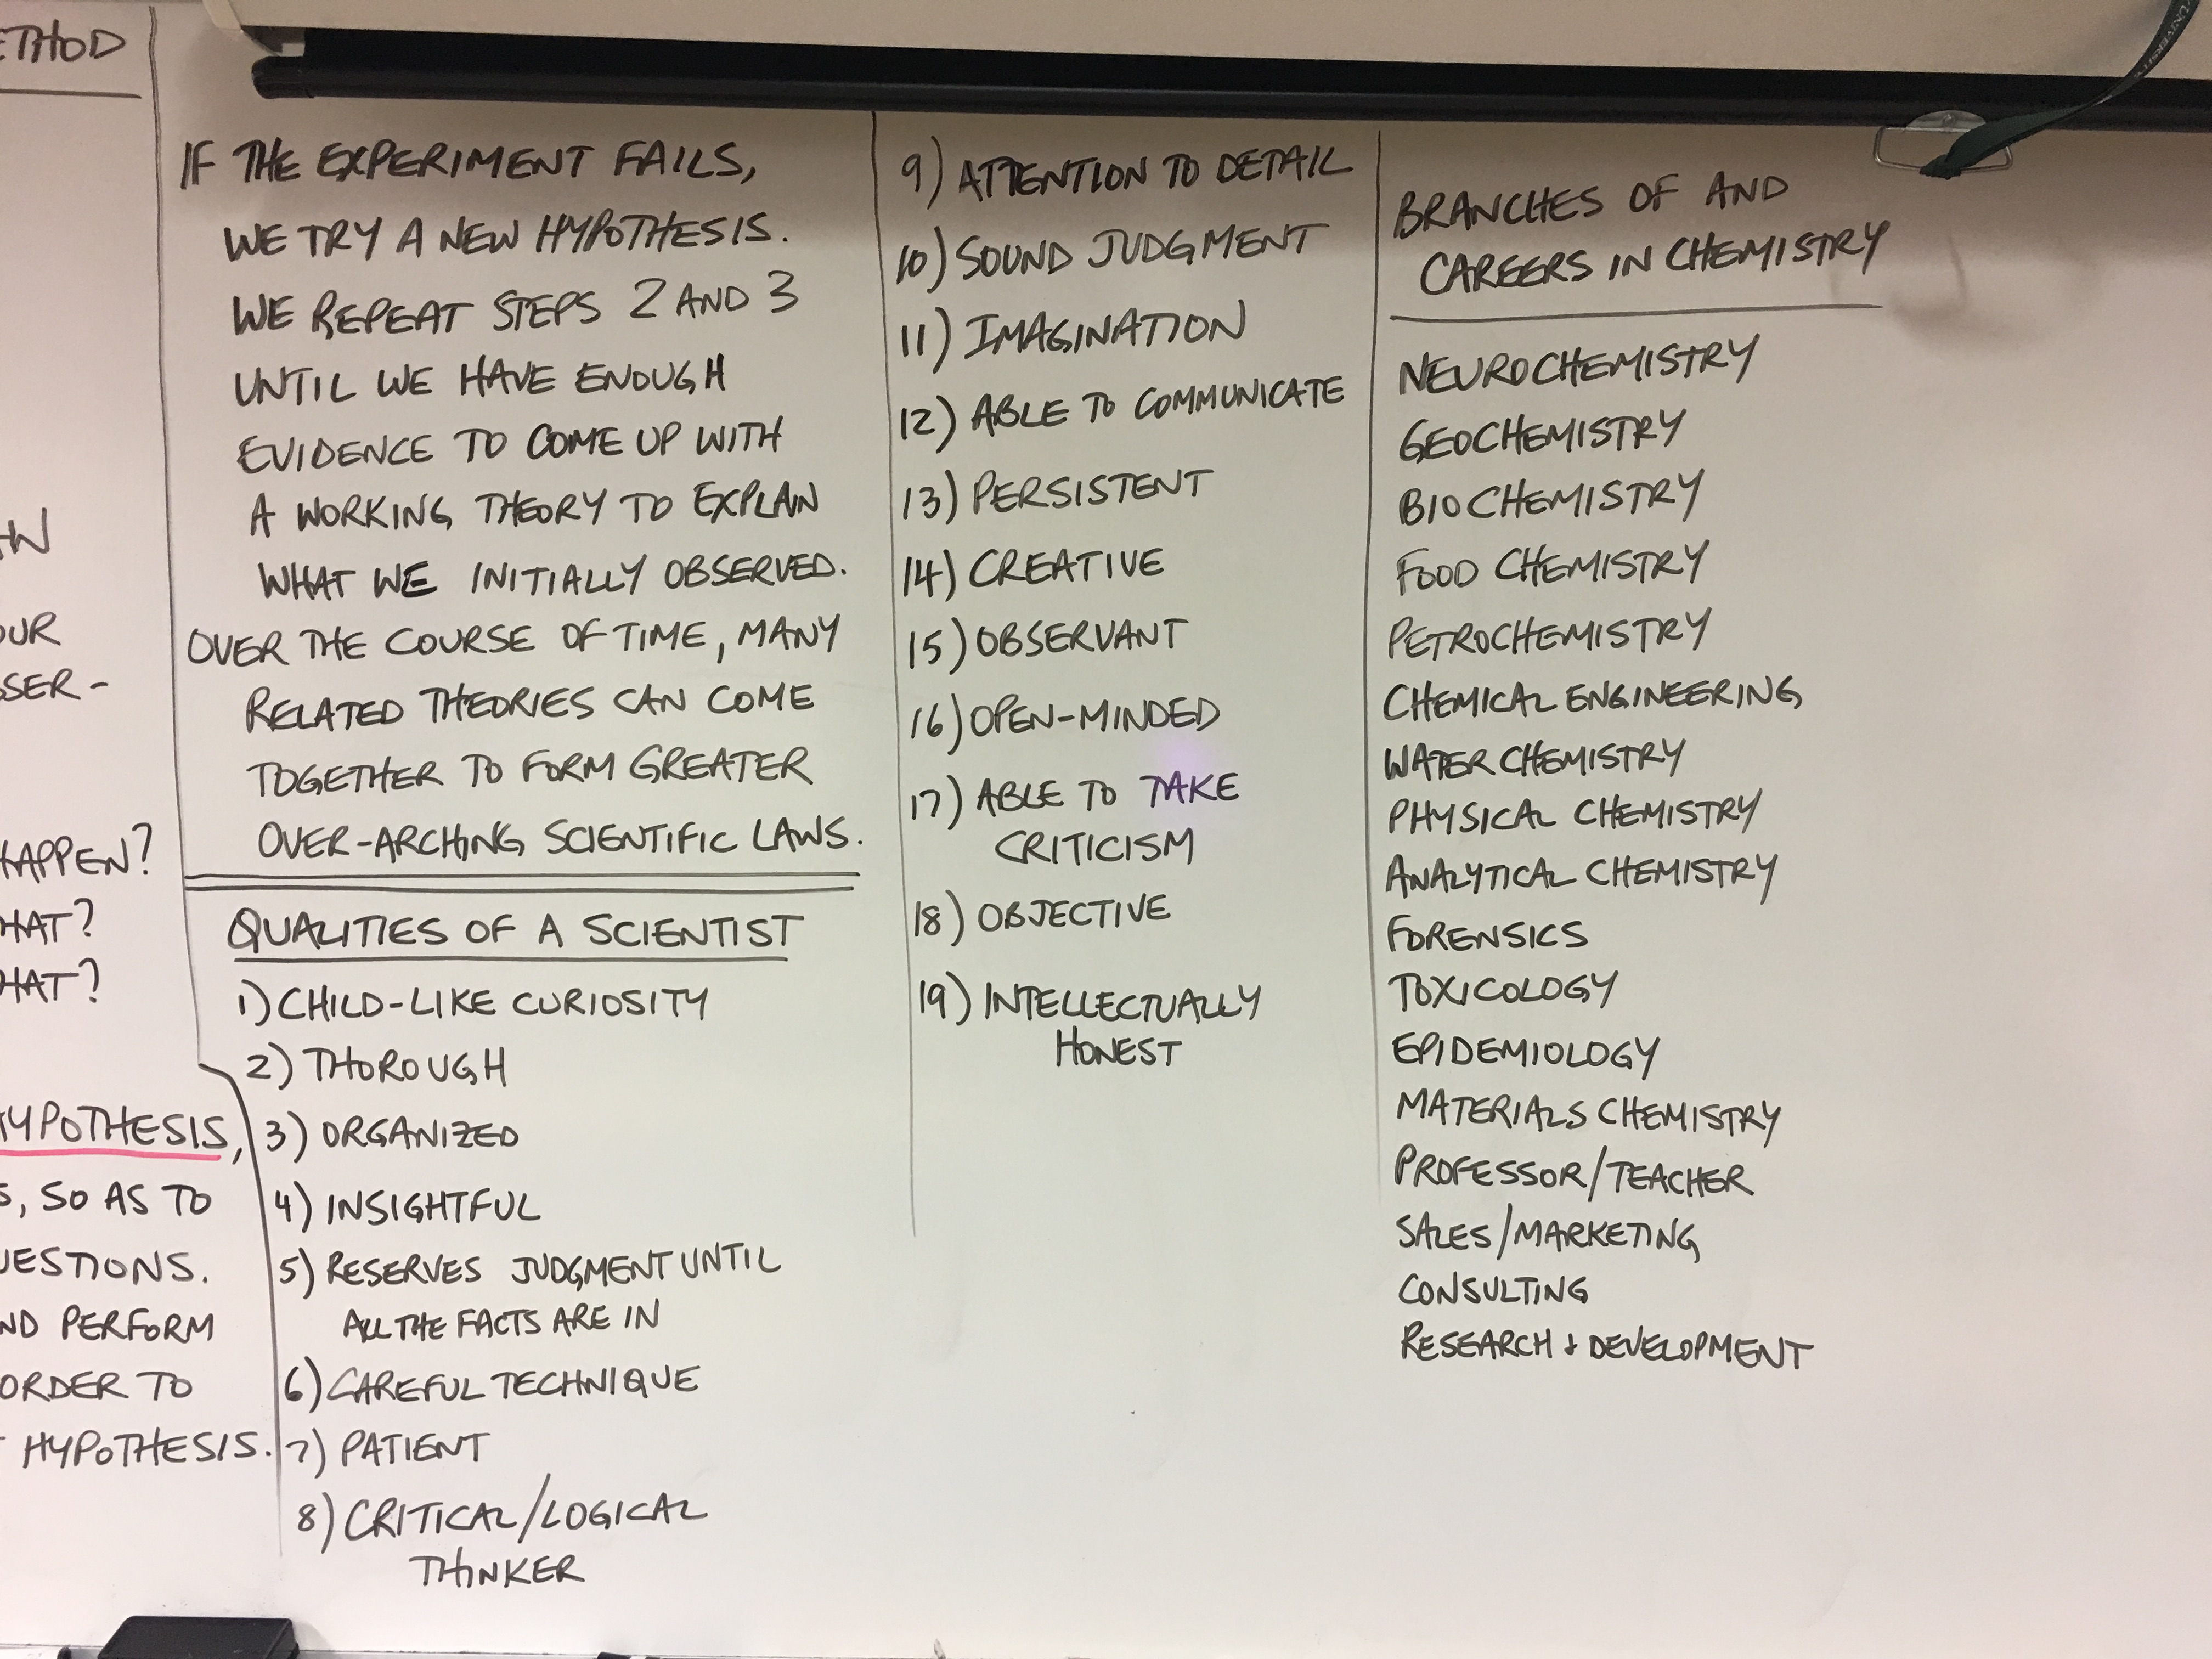 METHOD
HAPPEN?
HYPOTHESIS,
S, SO AS TO
QUESTIONS.
AND PERFORM
ORDER TO
HYPOTHESIS.
IF THE EXPERIMENT FAILS,
WE TRY A NEW HYPOTHESIS.
WE REPEAT STEPS 2 AND 3
UNTIL WE HAVE ENOUGH
EVIDENCE TO COME UP WITH
A WORKING THEORY TO EXPLAIN
WHAT WE INITIALLY OBSERVED.
OVER THE COURSE OF TIME, MANY
RELATED THEORIES CAN COME
TOGETHER TO FORM GREATER
OVER-ARCHING SCIENTIFIC LAWS.
QUALITIES OF A SCIENTIST
1) CHILD-LIKE CURIOSITY
2) THOROUGH
3) ORGANIZED
4) INSIGHTFUL
5) RESERVES JUDGMENT UNTIL
ALL THE FACTS ARE IN
6) CAREFUL TECHNIQUE
7) PATIENT
8) CRITICAL/LOGICAL
THINKER
9) ATTENTION TO DETAIL
10) SOUND JUDGMENT
11) IMAGINATION
12) ABLE TO COMMUNICATE
13) PERSISTENT
14) CREATIVE
15) OBSERVANT
16) OPEN-MINDED
17) ABLE TO TAKE
CRITICISM
18) OBJECTIVE
19) INTELLECTUALLY
HONEST
BRANCHES OF AND
CAREERS IN CHEMISTRY
NEUROCHEMISTRY
GEOCHEMISTRY
BIOCHEMISTRY
FOOD CHEMISTRY
PETROCHEMISTRY
CHEMICAL ENGINEERING
WATER CHEMISTRY
PHYSICAL CHEMISTRY
ANALYTICAL CHEMISTRY
FORENSICS
TOXICOLOGY
EPIDEMIOLOGY
MATERIALS CHEMISTRY
PROFESSOR/TEACHER
SALES/MARKETING
CONSULTING
RESEARCH & DEVELOPMENT